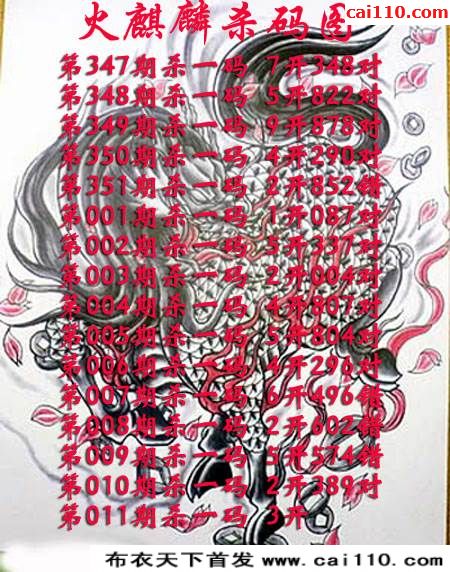 cai110.com
火麒麟杀码图
第347期杀一码 7开348对
第348期杀一码 5开822对
第349期杀一码 9开878对
第350期杀一码 4开290对
第351期杀一码 2开852错
第001期杀一码 1开087对
第002期杀一码 5开337对
第003期杀一码 2开004对
第004期杀一码 4开807对
第005期杀一码 5开804对
第006期杀一码 4开296对
第007期杀一码 6开496错
第008期杀一码 2开602错
第009期杀一码 5开574错
第010期杀一码 2开389对
第011期杀一码 3开
布衣天下首发 www.cai110.com